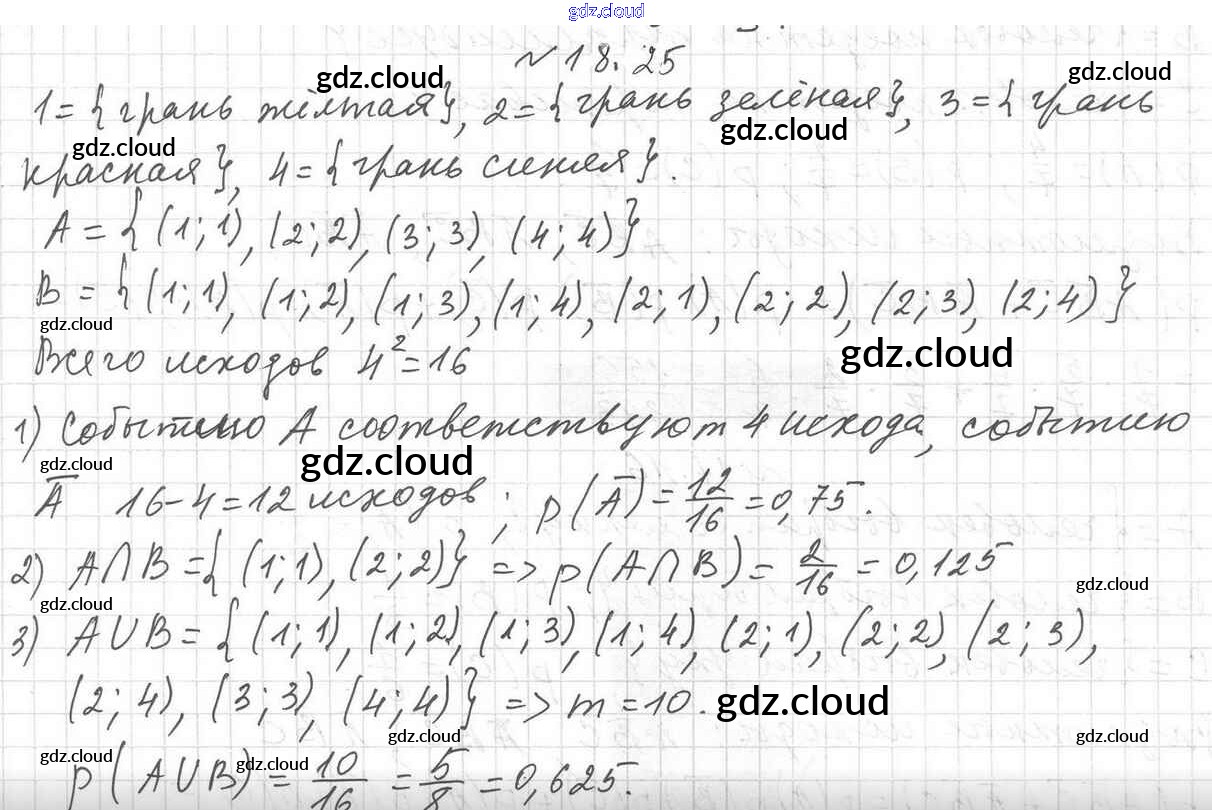 gdz.cloud
№ 18.25
gdz.cloud
gdz.cloud
1 = {грань жёлтая}, 2 = {грань зелёная}, 3 = {грань
gdz.cloud
gdz.cloud
красная}, 4 = {грань синяя}.
A = {(1; 1), (2; 2), (3; 3), (4; 4)}
B = {(1; 1), (1; 2), (1; 3), (1; 4), (2; 1), (2; 2), (2; 3), (2; 4)}
gdz.cloud
gdz.cloud
Всего исходов 4² = 16
1) Событию A соответствуют 4 исхода, событию
gdz.cloud
gdz.cloud
A̅ 16 - 4 = 12 исходов; p(A̅) = 12/16 = 0,75.
2) A∩B = {(1; 1), (2; 2)} => p(A∩B) = 2/16 = 0,125
gdz.cloud
gdz.cloud
3) A∪B = {(1; 1), (1; 2), (1; 3), (1; 4), (2; 1), (2; 2), (2; 3),
(2; 4), (3; 3), (4; 4)} => m = 10.
gdz.cloud
gdz.cloud
gdz.cloud
gdz.cloud
gdz.cloud
p(A∪B) = 10/16 = 5/8 = 0,625.